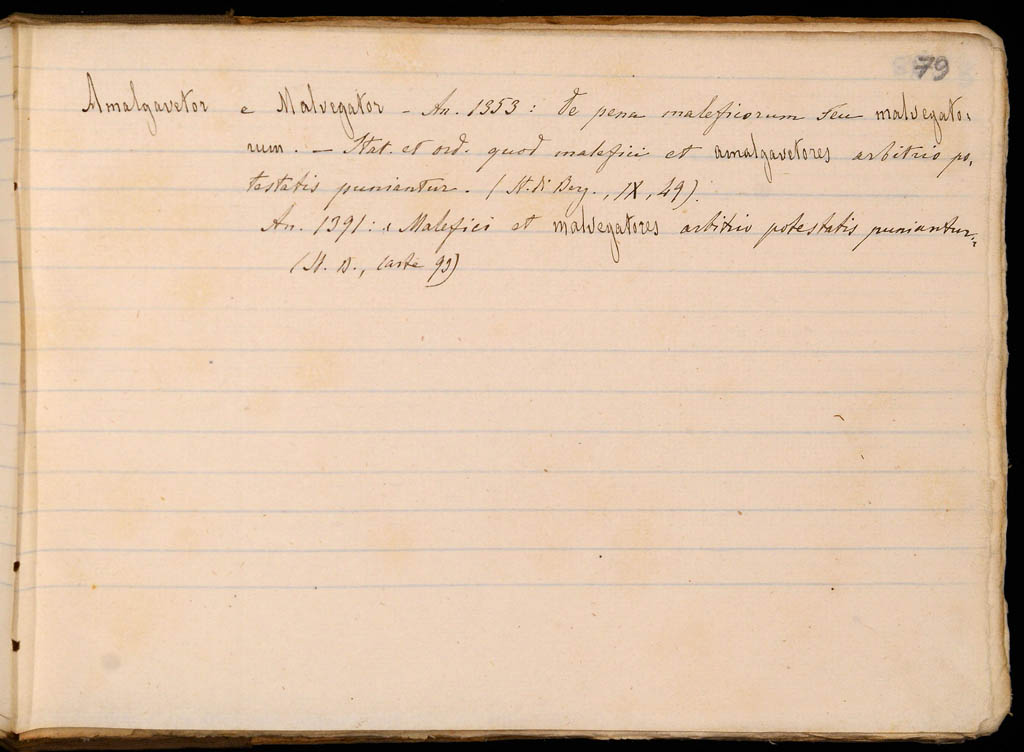 79
Amalgavetor e Malvegator - An. 1353: De pena maleficorum seu malvegato-
rum. - Stat. et ord. quod malefici et amalgavetores arbitrio po-
testatis puniantur. (St. di Berg., IX, 49).
An. 1391: « Malefici et malvegatores arbitrio potestatis puniantur »
(St. D., carte 93)